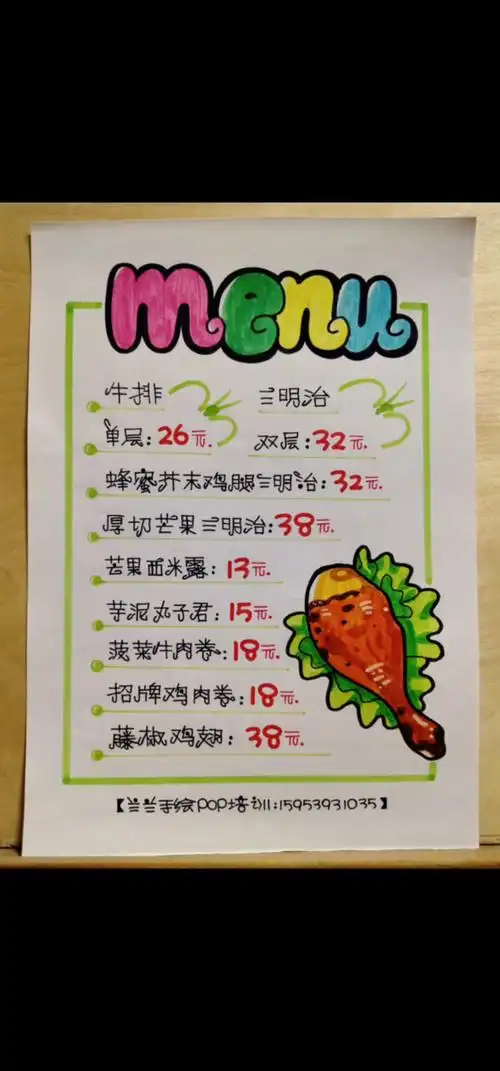 menu
牛排 三明治
单层:26元. 双层:32元.
蜂蜜芥末鸡腿三明治:32元.
厚切芒果三明治:38元.
芒果西米露:13元.
芋泥丸子君:15元.
菠菜牛肉卷:18元.
招牌鸡肉卷:18元.
藤椒鸡翅:38元.
【兰兰手绘POP培训:15953931035】